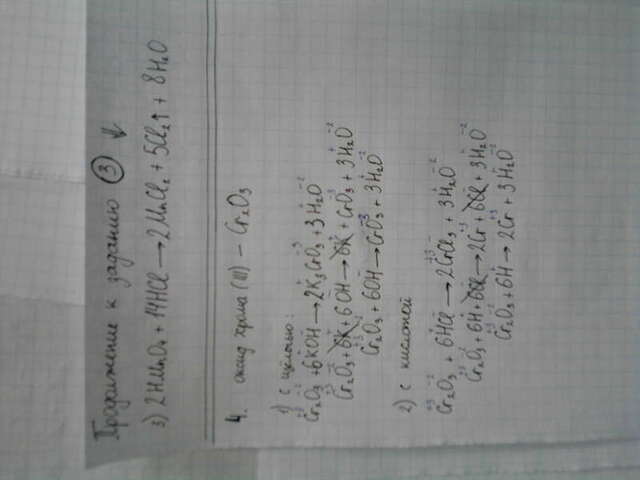 Продолжение к заданию ③ ↓
3) 2HMnO₄ + 14HCl → 2MnCl₂ + 5Cl₂↑ + 8H₂O
4. оксид хрома (III) – Cr₂O₃
1) с щёлочью:
Cr₂O₃ + 6KOH → 2K₃CrO₃ + 3H₂O
Cr₂O₃ + 6K + 6OH → 6K + CrO₃ + 3H₂O
Cr₂O₃ + 6OH → CrO₃ + 3H₂O
2) с кислотой
Cr₂O₃ + 6HCl → 2CrCl₃ + 3H₂O
Cr₂O₃ + 6H + 6Cl → 2Cr + 6Cl + 3H₂O
Cr₂O₃ + 6H → 2Cr + 3H₂O